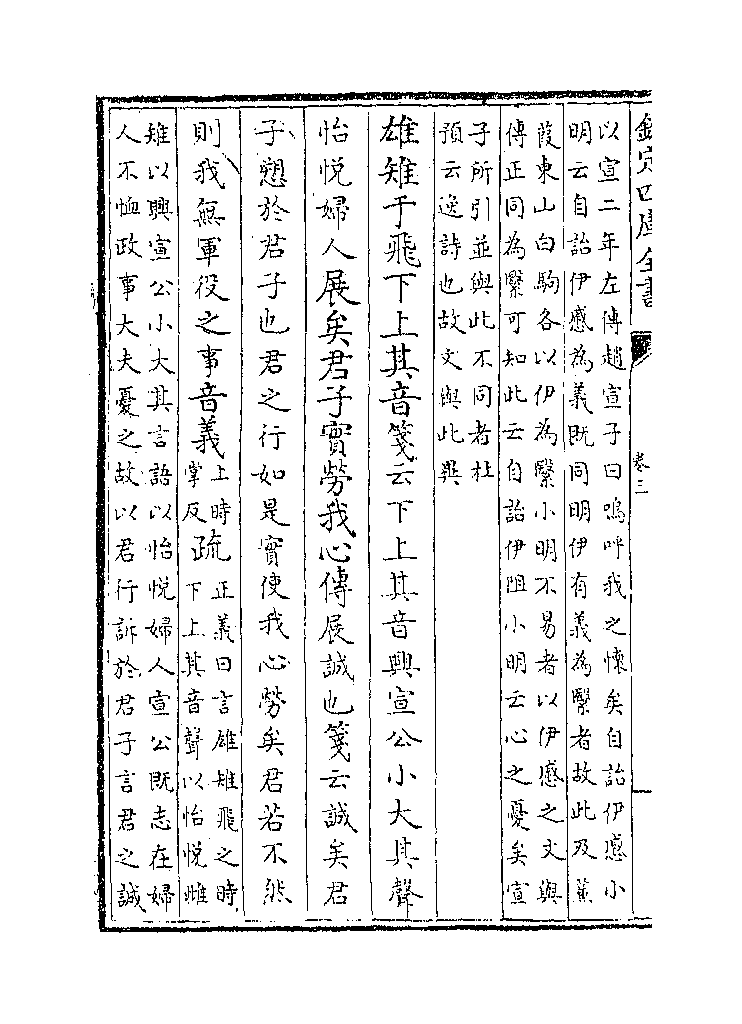 欽定四庫全書 卷三
以宣二年左傳趙宣子曰嗚呼我之懷矣自詒伊慼小
明云自詒伊慼為義既同明伊有義為繄者故此及蒹
葭東山白駒各以伊為繄小明不易者以伊慼之文與
傳正同為繄可知此云自詒伊阻小明云心之憂矣宣
子所引並與此不同者杜
預云逸詩也故文與此異
雄雉于飛下上其音箋云下上其音興宣公小大其聲
怡悅婦人展矣君子實勞我心傳展誠也箋云誠矣君
子愬於君子也君之行如是實使我心勞矣君若不然
則我無軍役之事音義上時掌反疏正義曰言雄雉飛之時
下上其音聲以怡悅雌
雉以興宣公小大其言語以怡悅婦人宣公既志在婦
人不恤政事大夫憂之故以君行訴於君子言君之誠